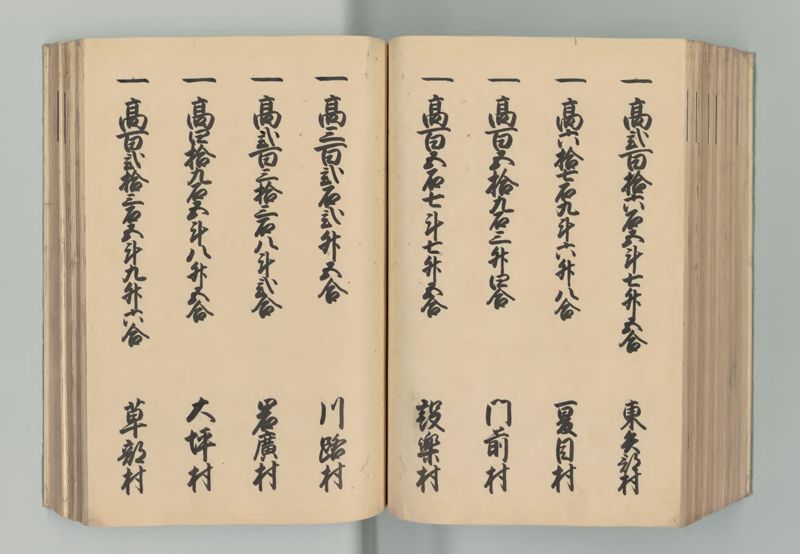 一高弐百拾六石五斗七升五合 東矢部村
一高六拾七石九斗六升八合 夏目村
一高百五拾九石三升四合 門前村
一高百五石七斗七升五合 設樂村
一高三百弐石弐升五合 川路村
一高弐百三拾三石八斗弐合 岩廣村
一高四拾九石五斗八升五合 大坪村
一高百弐拾三石五斗九升六合 草部村